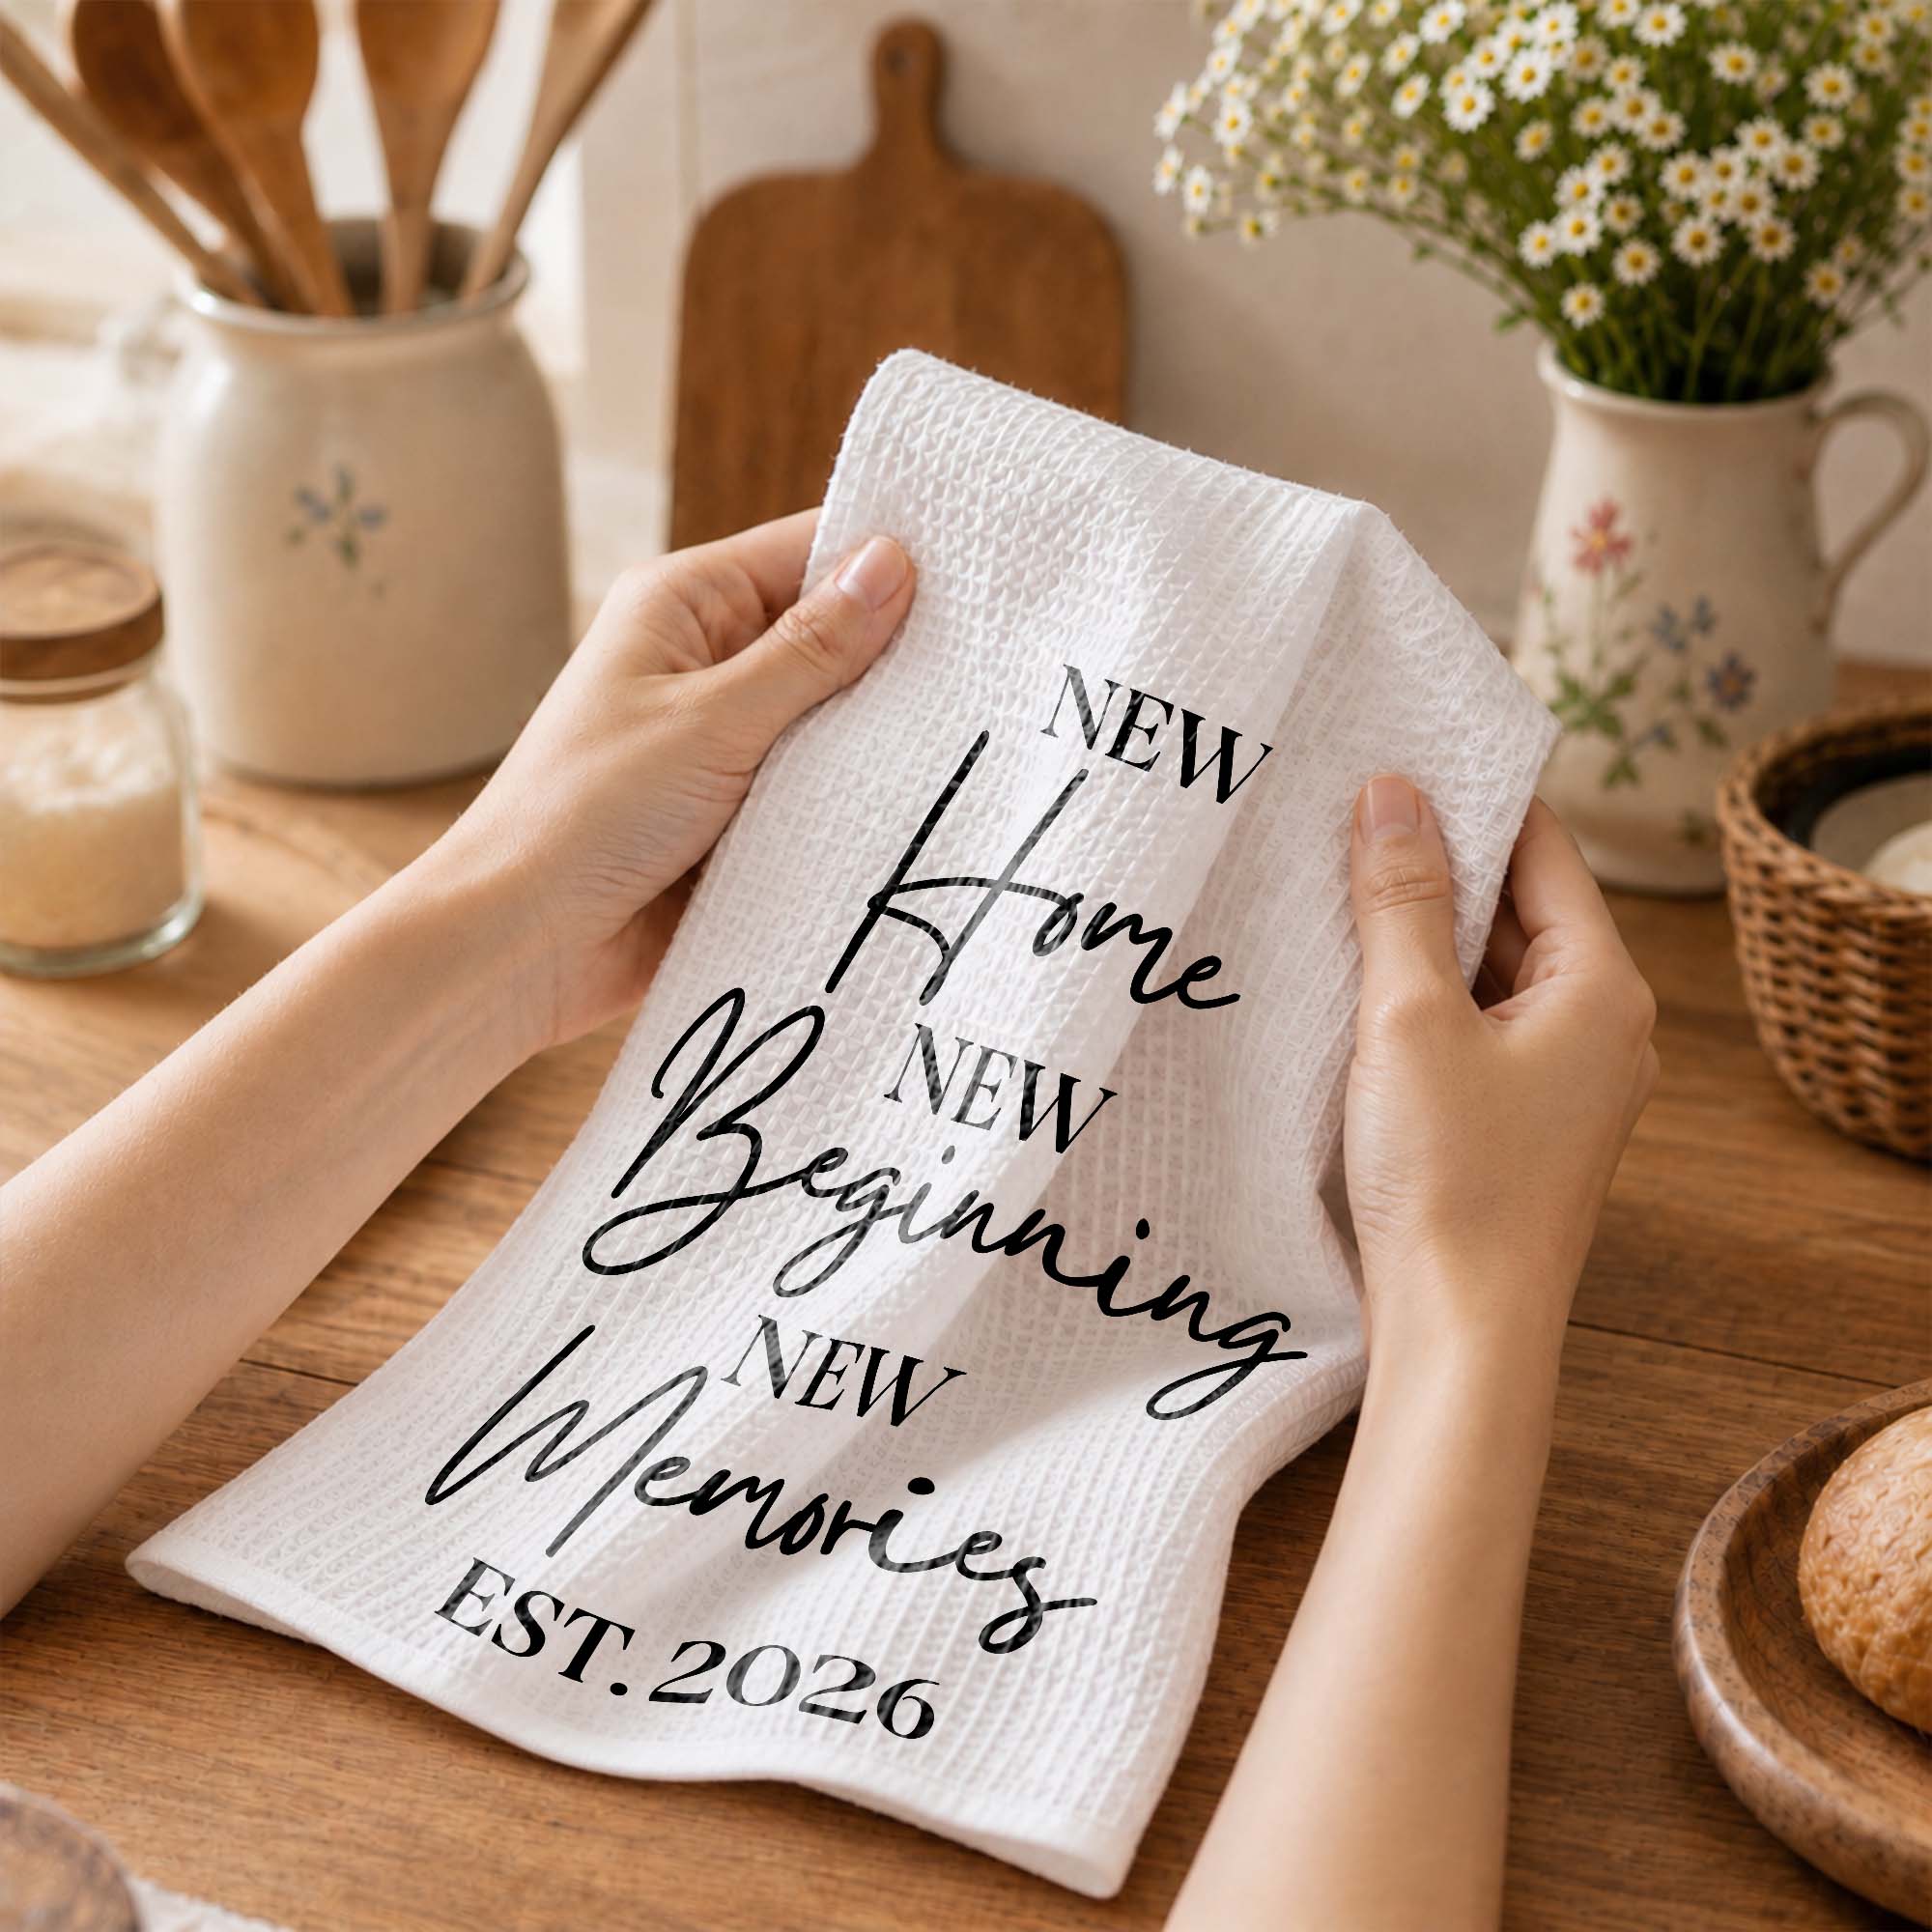 NEW
Home
NEW
Beginning
NEW
Memories
EST. 2026